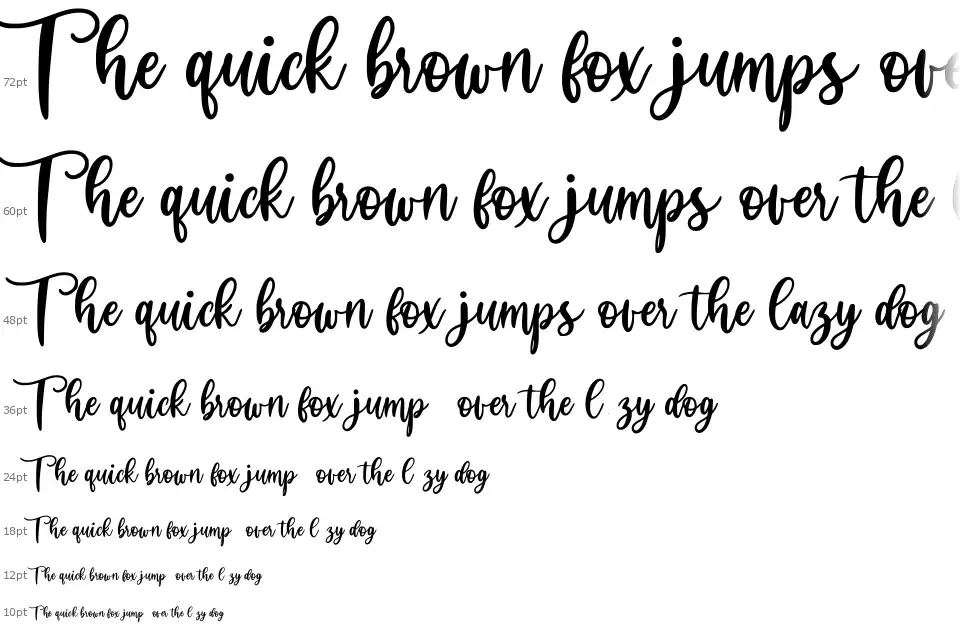 72pt The quick brown fox jumps ove
60pt The quick brown fox jumps over the
48pt The quick brown fox jumps over the lazy dog
36pt The quick brown fox jump over the l zy dog
24pt The quick brown fox jump over the l zy dog
18pt The quick brown fox jump over the l zy dog
12pt The quick brown fox jump over the l zy dog
10pt The quick brown fox jump over the l zy dog